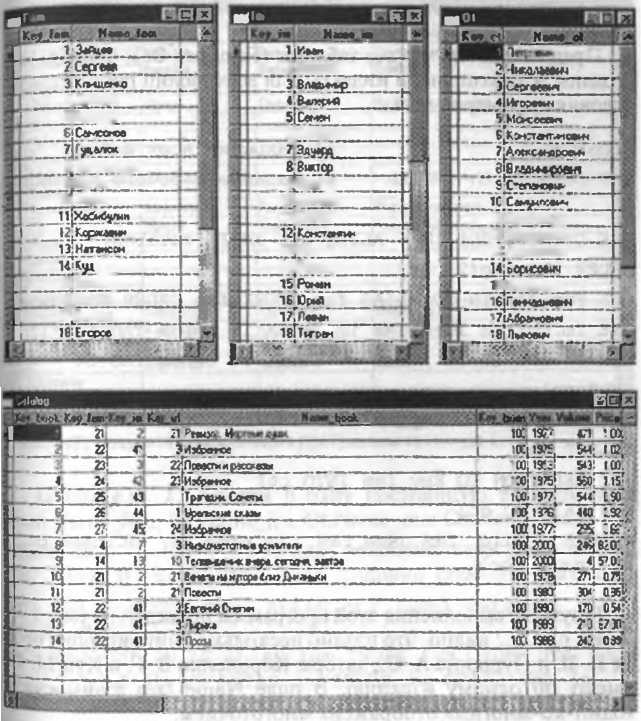 Fam
Key_fam Name_fam
1 Зайцев
2 Сергеев
3 Клищенко
6 Самсонов
7 Гудалюк
11 Хабибулин
12 Коржавин
13 Натансон
14 Куц
18 Егоров
Im
Key_im Name_im
1 Иван
3 Владимир
4 Валерий
5 Семен
7 Эдуард
8 Виктор
12 Константин
15 Роман
16 Юрий
17 Леван
18 Тигран
Ot
Key_ot Name_ot
1 Петрович
2 Николаевич
3 Сергеевич
4 Игоревич
5 Моисеевич
6 Константинович
7 Александрович
8 Владимирович
9 Степанович
10 Самуилович
14 Борисович
16 Геннадиевич
17 Абрамович
18 Львович
Catalog
Key_book Key_fam Key_im Key_ot Name_book Key_busn Year Volume Price
21 2 21 Ревизор. Мертвые души. 100 1977 471
2 22 41 3 Избранное 100 1975 544 1.02
3 23 3 22 Повести и рассказы 100 1953 543 1.00
4 24 42 23 Избранное 100 1975 560 1.15
5 25 43 Трагедии. Сонеты. 100 1977 544
6 26 44 1 Уральские сказы 100 1976 440 0.92
7 27 45 24 Избранное 100 1977 295
8 4 7 3 Низкочастотные усилители 100 2000 246
9 14 13 10 Телевидение вчера, сегодня, завтра 100 2000 4 57.00
10 21 2 21 Вечера на хуторе близ Диканьки 100 1978 271 0.75
11 21 2 21 Повести 100 1980 304
12 22 41 3 Евгений Онегин 100 1980 170 0.54
13 22 41 3 Лирика 100 1989
14 22 41 3 Проза 100 1988 242 0.89